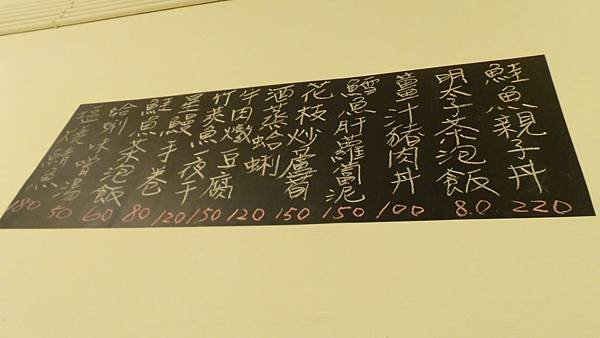 鮭魚親子丹 220
明太子茶泡飯 80
薑汁豬肉丹 100
鱈魚肝蘿蔔泥 150
花枝炒蘆筍 150
酒蒸蛤蜊 120
牛肉燉豆腐 150
竹莢魚夜干 120
星鰻手卷 80
鮭魚茶泡飯 60
蛤蜊味噌湯 50
鹽燒鯖魚 180